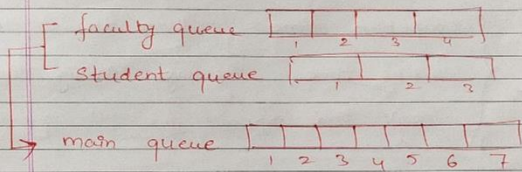 faculty queue
1 2 3 4
student queue
1 2 3
main queue
1 2 3 4 5 6 7